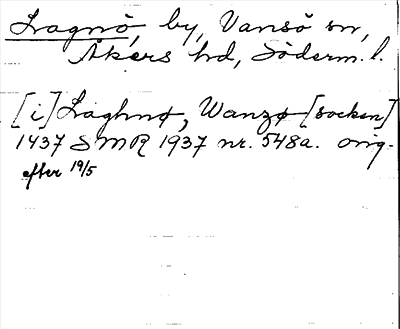 Lagnö, by, Vansö sn,
Åkers hd, Söderm. l.
[i] Laghnø, Wanzø [socken]
1437 SMR 1937 nr. 548a. orig.
efter 19/5